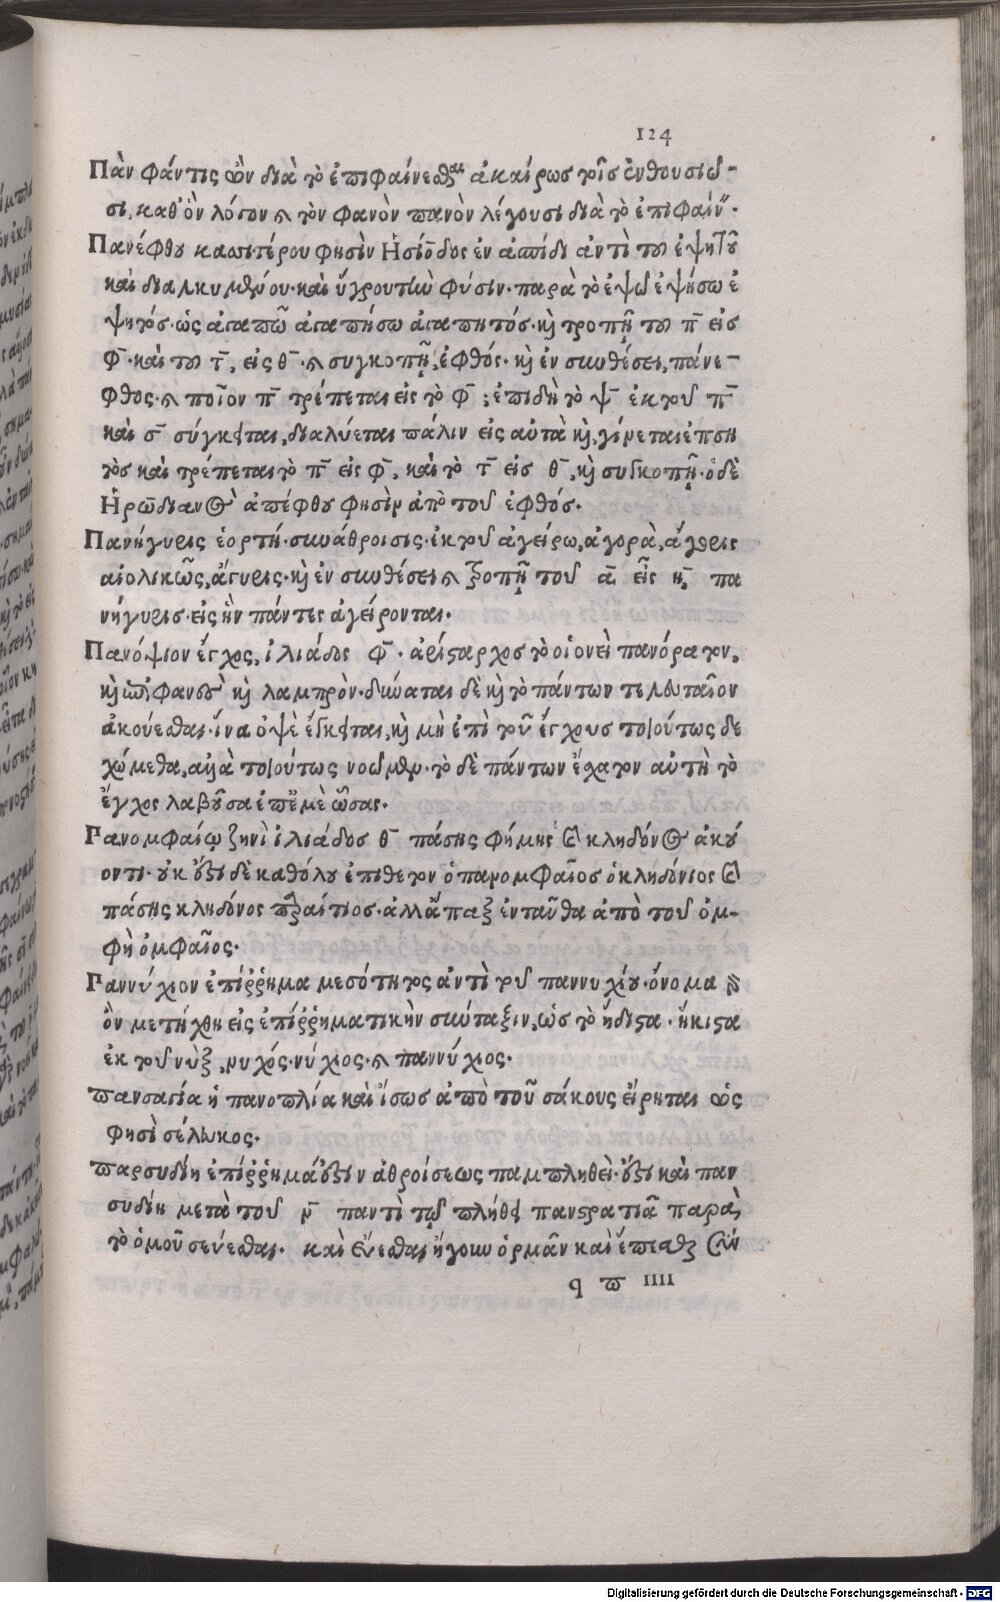 124
Πὰν φάντις ὢν διὰ τὸ ἐπιφαίνεσθαι ἀκαίρως τοῖς ἐνθουσιῶ-
σι, καθ' ὃν λόγον καὶ τὸν φανὸν πανὸν λέγουσι διὰ τὸ ἐπιφαίν".
Πανέφθου κασσιτέρου φησὶν Ἡσίοδος ἐν ἀσπίδι ἀντὶ τοῦ ἑψητοῦ
καὶ διακεκυμένου· καὶ ὑγροῦ τὴν φύσιν· παρὰ τὸ ἑψῶ ἑψήσω ἑ
ψητός· ὡς ἀγαπῶ ἀγαπήσω ἀγαπητός· καὶ τροπῇ τοῦ π̄ εἰς
φ̄· καὶ τοῦ τ̄, εἰς θ̄· καὶ συγκοπῇ, ἑφθός· καὶ ἐν συνθέσει, πάνε-
φθος· καὶ ποῖον π̄ τρέπεται εἰς τὸ φ̄; ἐπιδὴ τὸ ψ̄ ἐκ τοῦ π̄
καὶ σ̄ σύγκειται, διαλύεται πάλιν εἰς αὐτὰ καὶ, γίνεται ἐπση
τὸς καὶ τρέπεται τὸ π̄ εἰς φ̄, καὶ τὸ τ̄ εἰς θ̄, καὶ συγκοπῇ· ὁ δὲ
Ἡρωδιανὸς ἀπέφθου φησὶν ἀπὸ τοῦ ἑφθός.
Πανήγυρις ἑορτή· συνάθροισις· ἐκ τοῦ ἀγείρω, ἀγορὰ, ἄγορις
αἰολικῶς, ἄγυρις· καὶ ἐν συνθέσει καὶ τροπῇ τοῦ ᾱ εἰς η̄, πα
νήγυρις· εἰς ἣν πάντες ἀγείρονται.
Πανόψιον ἔγχος, ἰλιάδος φ̄· ἀρίσταρχος τὸ οἱονεὶ πανόρατον,
καὶ ἐπιφανὲς καὶ λαμπρὸν· δύναται δὲ καὶ τὸ πάντων τελευταῖον
ἀκούεσθαι· ἵνα ὀψὲ ἔγκειται, καὶ μὴ ἐπὶ τοῦ ἔγχους τοιούτως δε
χώμεθα, ἀλλὰ τοιούτως νοῶμεν· τὸ δὲ πάντων ἔσχατον αὐτὴ τὸ
ἔγχος λαβοῦσα ἐπ' ἐμὲ ὦσας.
Πανομφαίῳ ζηνὶ ἰλιάδος θ̄ πάσης φήμης καὶ κληδόνος ἀκού
οντι· οὐκ ἔστι δὲ καθόλου ἐπίθετον ὁ πανομφαῖος ὁ κληδόνιος καὶ
πάσης κληδόνος παραίτιος· ἀλλ' ἅπαξ ἐνταῦθα ἀπὸ τοῦ ὀμ-
φὴ ὀμφαῖος.
Παννύχιον ἐπίρρημα μεσότητος ἀντὶ τοῦ παννυχίου· ὄνομα
ὂν μετήχθη εἰς ἐπιρρηματικὴν σύνταξιν, ὡς τὸ ἥδιστα· ἥκιστα
ἐκ τοῦ νὺξ, νυχός· νύχιος· καὶ παννύχιος.
πανσαγία ἡ πανοπλία καὶ ἴσως ἀπὸ τοῦ σάκους εἴρηται ὡς
φησὶ σέλευκος.
πασσυδίη ἐπίρρημά ἐστιν ἀθροίσεως παμπληθεὶ· ἔστι καὶ παν
συδίη μετὰ τοῦ ν̄ παντὶ τῷ πλήθει πανστρατιᾶ παρὰ
τὸ ὁμοῦ σεύεσθαι. καὶ σύεσθαι ἤγουν ὁρμᾶν καὶ ἕπεσθαι σὺν
q π IIII
Digitalisierung gefördert durch die Deutsche Forschungsgemeinschaft - DFG